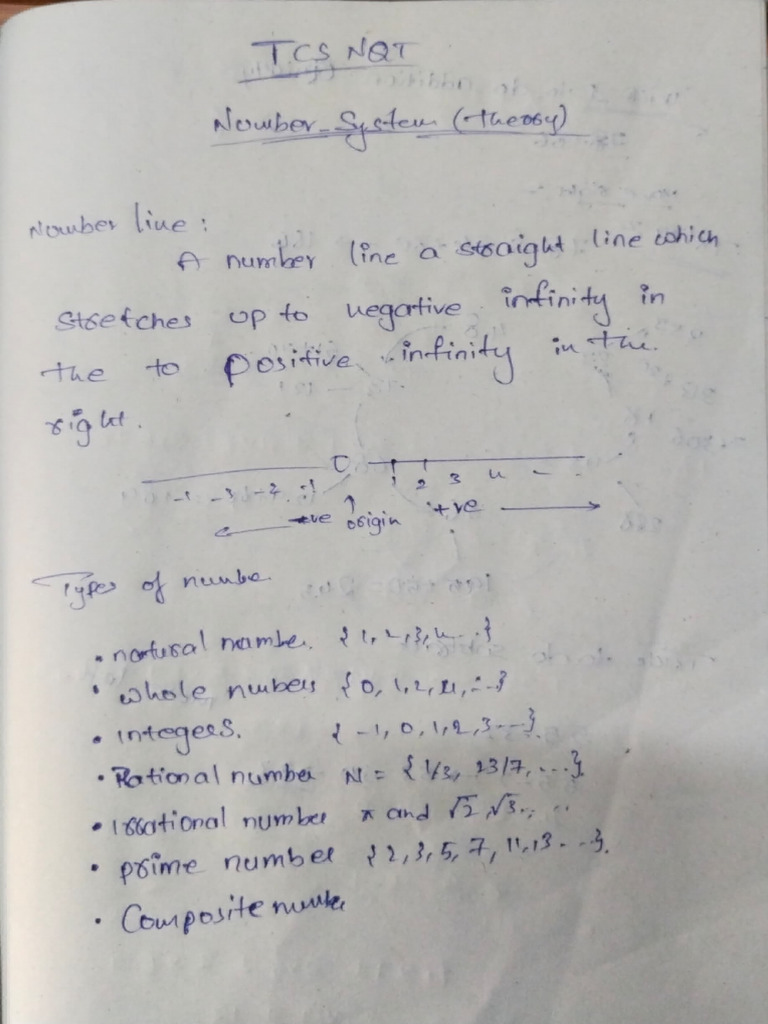 TCS NQT
Number System (theory)
Number line :
A number line a straight line which
stretches up to negative infinity in
the to positive infinity in the
right.
0
-1 -3 -2 -1 1 2 3 4 - -
-ve origin +ve
Types of numbe
• natural number. {1, 2, 3, 4...}
• whole numbers {0, 1, 2, ...}
• integers. {-1, 0, 1, 2, 3 ---}
• Rational number N = {1/3, 23/7, ...}
• irrational number π and √2, √3., ..
• prime number {2, 3, 5, 7, 11, 13 - - -}.
• Composite number